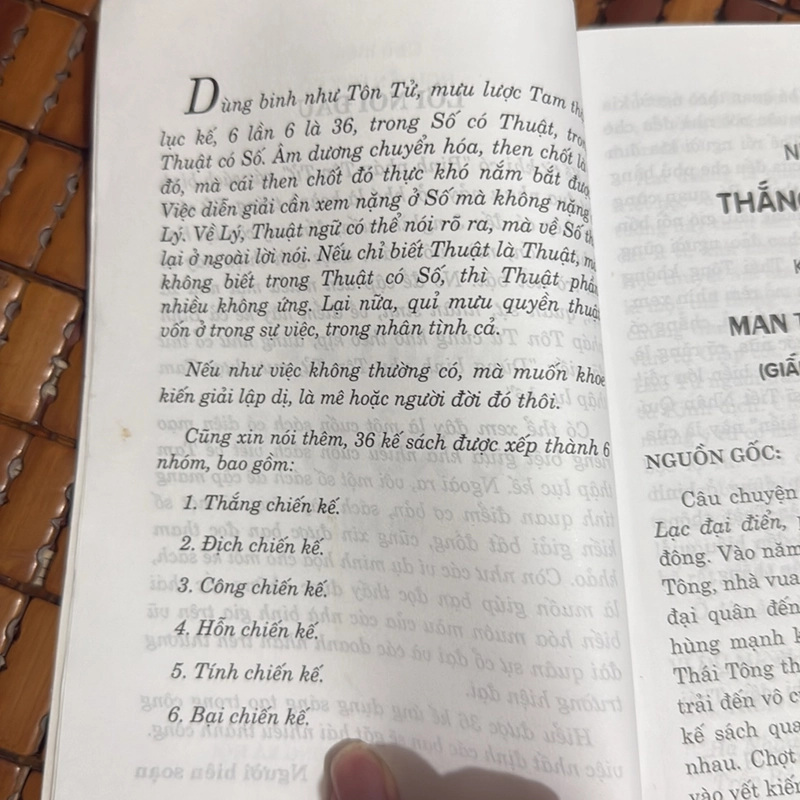 Dùng binh như Tôn Tử, mưu lược Tam
lục kế, 6 lần 6 là 36, trong Số có Thuật,
Thuật có Số. Âm dương chuyển hóa, then chốt là
đó, mà cái then chốt đó thực khó nắm bắt
Việc diễn giải cần xem nặng ở Số mà không nặng
Lý. Về Lý, Thuật ngữ có thể nói rõ ra, mà về Số
lại ở ngoài lời nói. Nếu chỉ biết Thuật là Thuật,
không biết trong Thuật có Số, thì Thuật
nhiều không ứng. Lại nữa, quỉ mưu quyền thuật
vốn ở trong sự việc, trong nhân tình cả.
Nếu như việc không thường có, mà muốn khoe
kiến giải lập dị, là mê hoặc người đời đó thôi.
Cũng xin nói thêm, 36 kế sách được xếp thành 6
nhóm, bao gồm:
1. Thắng chiến kế.
2. Địch chiến kế.
3. Công chiến kế.
4. Hỗn chiến kế.
5. Tính chiến kế.
6. Bại chiến kế.
THẮNG
MAN
NGUỒN GỐC:
Câu chuyện
Lạc đại điển,
đông. Vào năm
Tông, nhà vua
đại quân đến
hùng mạnh
Thái Tông
trải đến vô
kế sách
nhau. Chợt
vào vết